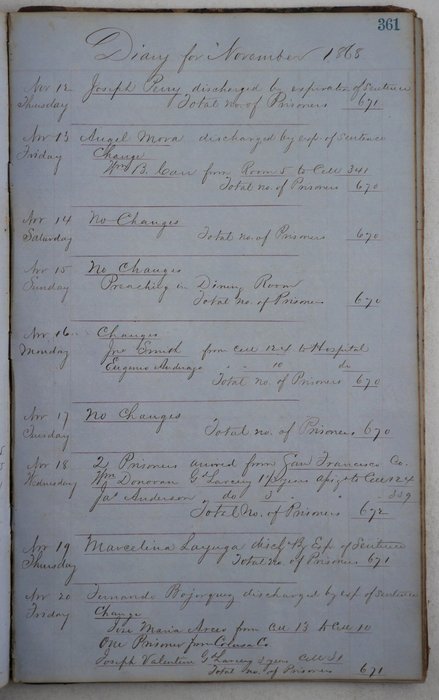 361
Diary for November 1868
Nov 12 Joseph Perry discharged by expiration of Sentence
Thursday Total no. of Prisoners 671
Nov 13 Angel Mora discharged by exp of Sentence
Friday Change
Wm B. Carr from Room 5 to Cell 341
Total no. of Prisoners 670
Nov 14 No Changes
Saturday Total no. of Prisoners 670
Nov 15 No Changes
Sunday Preaching in Dining Room
Total no. of Prisoners 670
Nov 16 Changes
Monday Jno Smith from Cell 124 to Hospital
Eugenio " " 10 do
Total no. of Prisoners 670
Nov 17 No Changes
Tuesday Total no. of Prisoners 670
Nov 18 2 Prisoners arrived from San Francisco Co.
Wednesday Wm Donovan Gd Larceny to Cell 124
Jas Anderson do 3 " "
Total No. of Prisoners 672
Nov 19 Marcelina Layuga disch By Exp of Sentence
Thursday Total no. of Prisoners 671
Nov 20 Fernando Bojorquez discharged by exp of Sentence
Friday Change
Jose Maria from Cell 13 to Cell 10
One Prisoner from Colusa Co
Joseph Valentin Gd Larceny Cell 31
Total no. of Prisoners 671